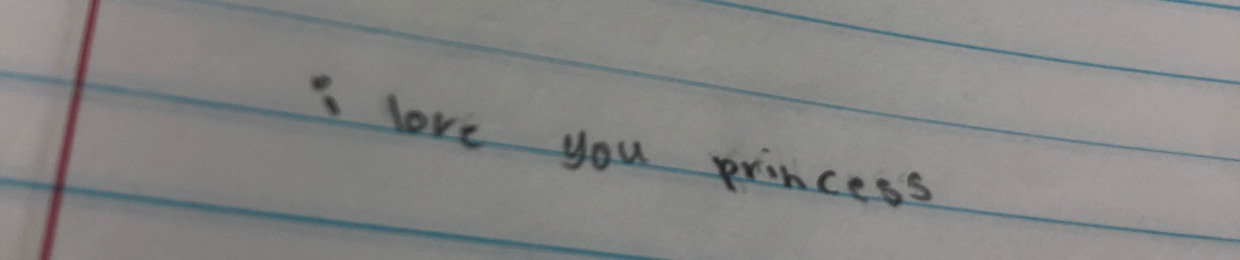 i love you princess